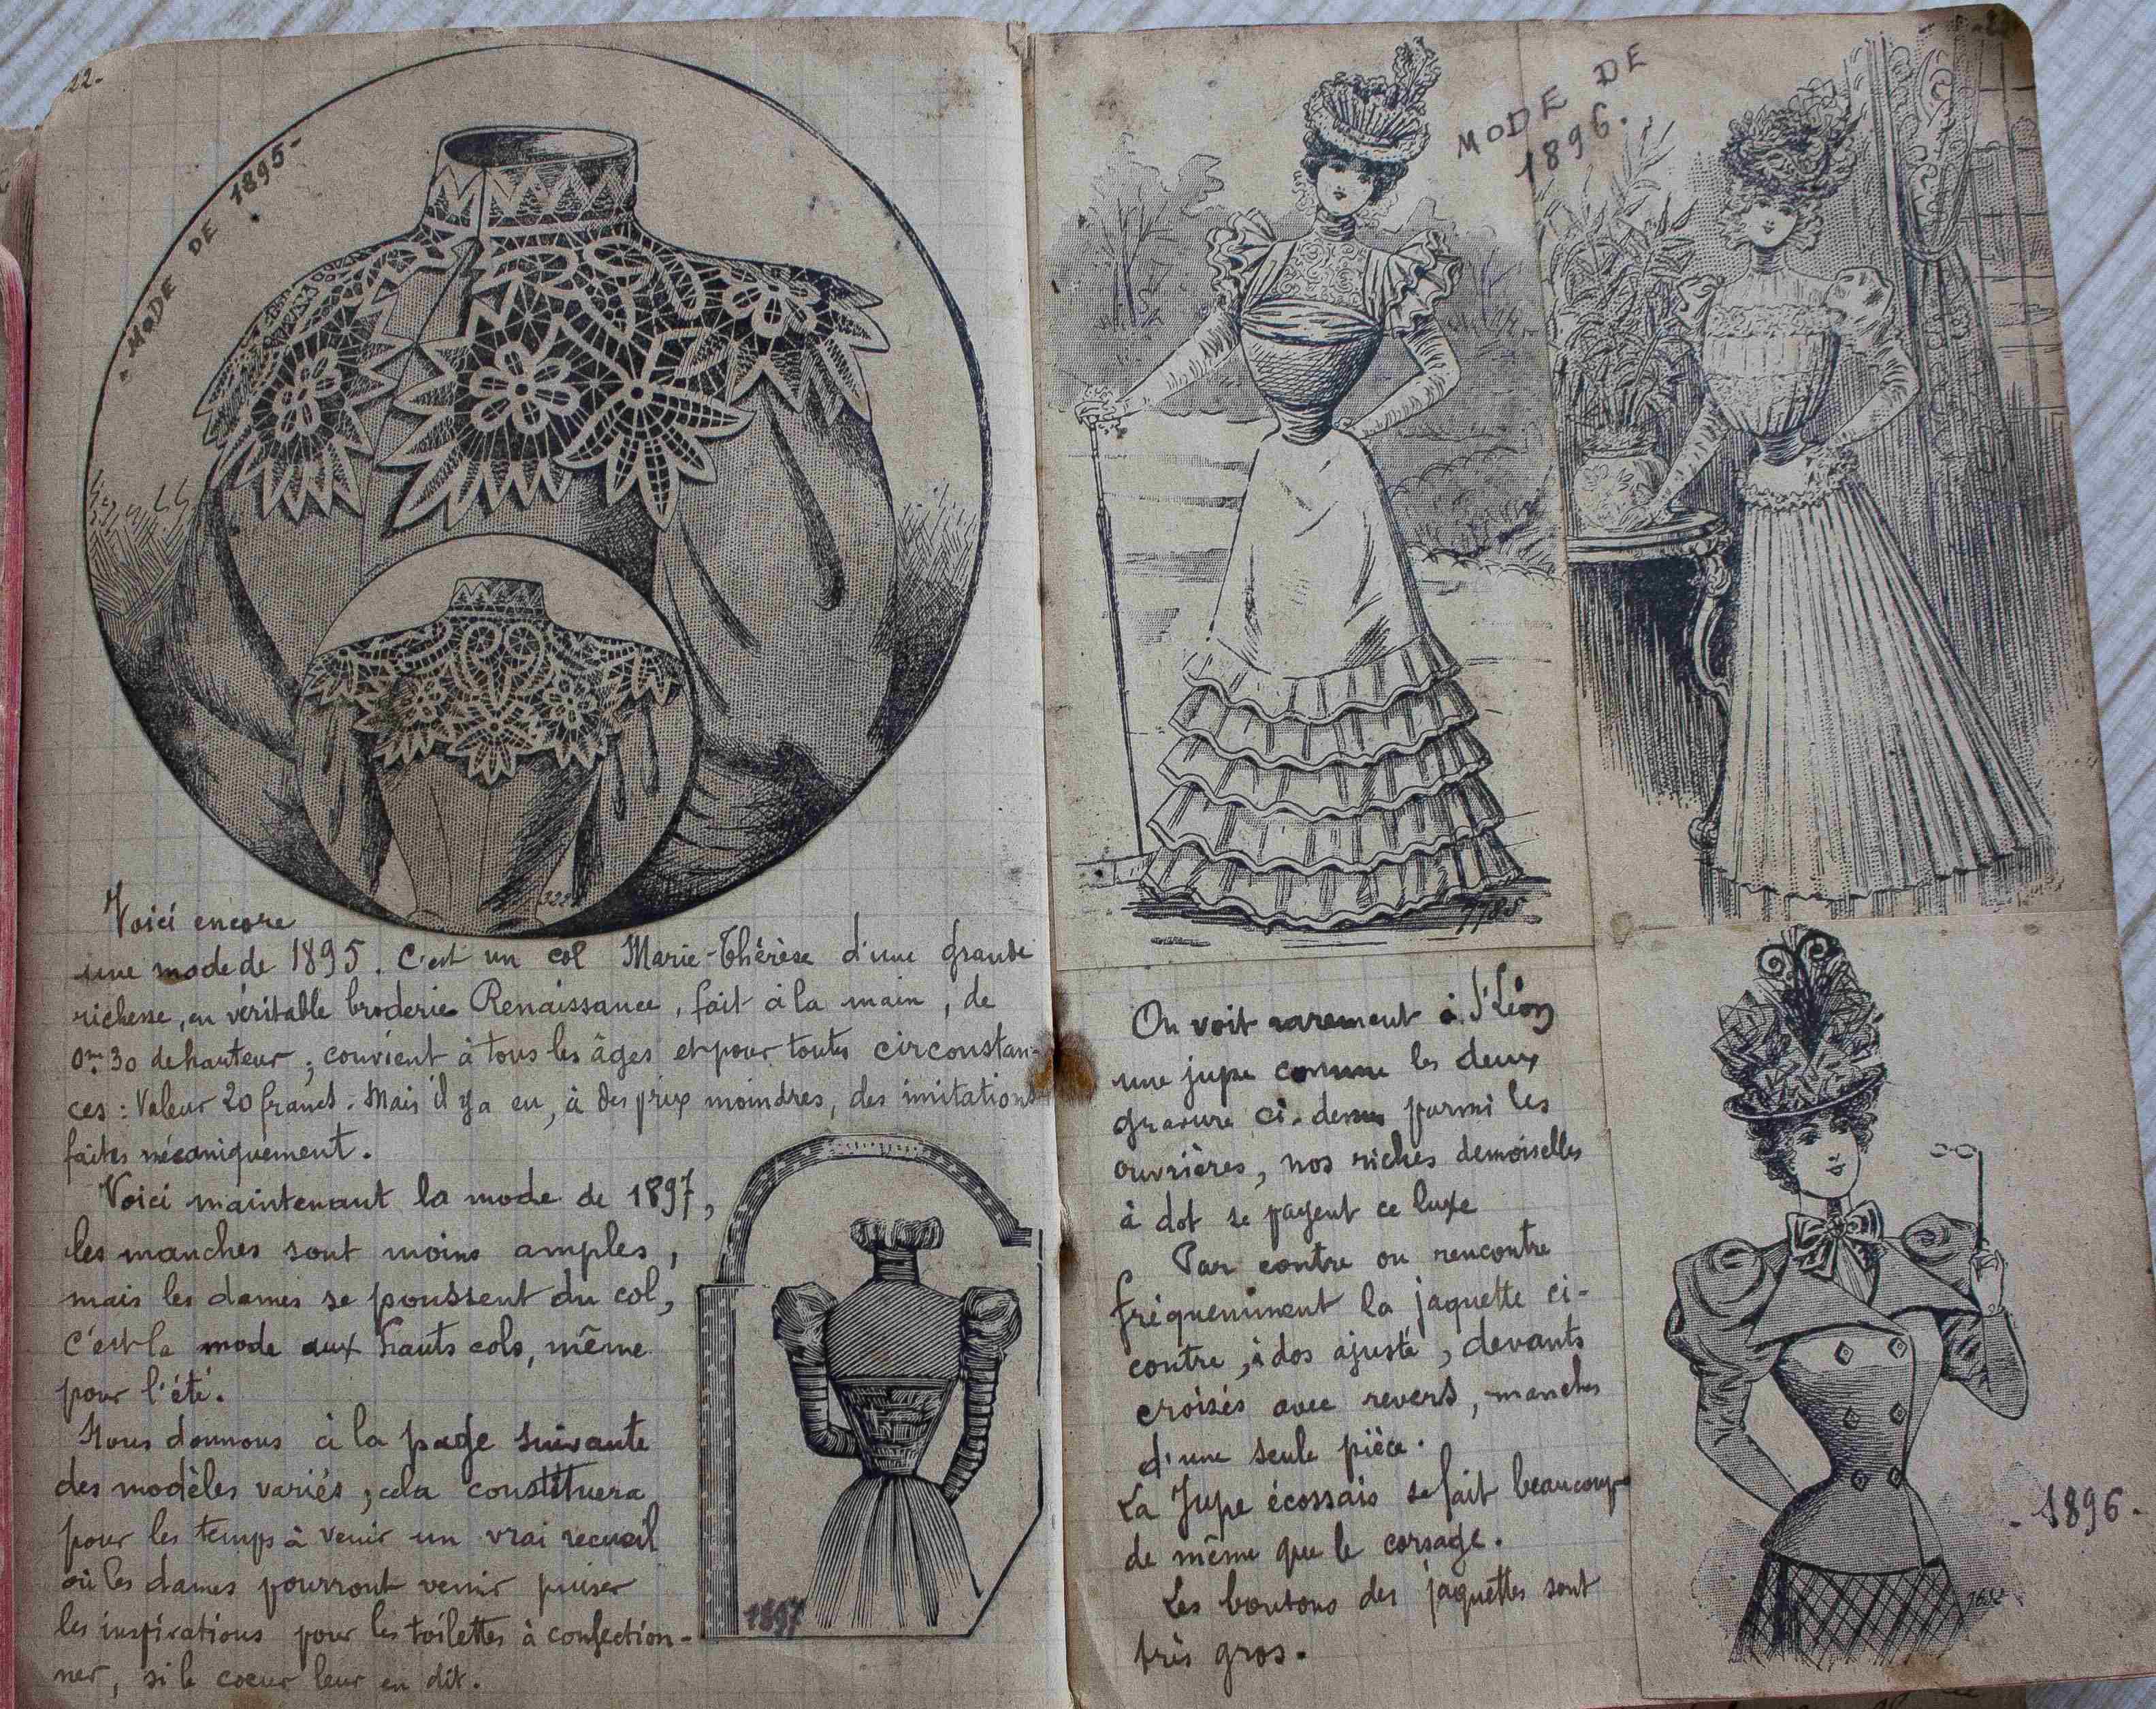 22-
- MODE DE 1895-
322
Voici encore
une mode de 1895. C'est un col Marie-Thérèse d'une grande
richesse, en véritable broderie Renaissance, fait à la main, de
0m30 de hauteur ; convient à tous les âges et pour toutes circonstan-
ces : Valeur 20 francs. Mais il y a eu, à des prix moindres, des imitations
faites mécaniquement.
Voici maintenant la mode de 1897,
les manches sont moins amples,
mais les dames se poussent du col,
c'est la mode aux hauts cols, même
pour l'été.
Nous donnons à la page suivante
des modèles variés, cela constituera
pour les temps à venir un vrai recueil
où les dames pourront venir puiser
les inspirations pour les toilettes à confection-
ner, si le coeur leur en dit.
1897
MODE DE
1896.
7785
On voit rarement à St Léon
une jupe comme les deux
gravure ci-dessus parmi les
ouvrières, nos riches demoiselles
à dot se payent ce luxe
Par contre on rencontre
fréquemment la jaquette ci-
contre, à dos ajusté, devants
croisés avec revers, manches
d'une seule pièce.
La Jupe écossais se fait beaucoup
de même que le corsage.
Les boutons des jaquettes sont
très gros.
- 1896 -